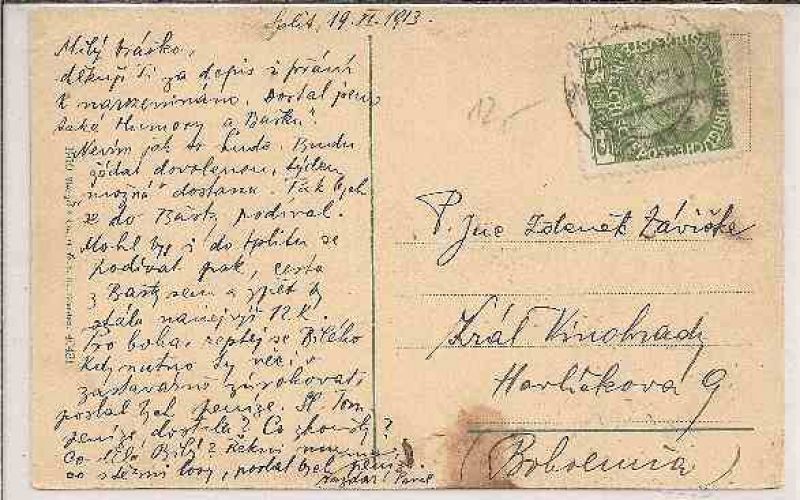 Split, 19.XI.1913.
Milý bráško,
děkuji Ti za dopis i přání
k narozeninám. Dostal jsem
také Humory a Bašku.
Nevím jak to bude. Budu
žádat dovolenou, týden
"možná" dostanu. Pak bych
se do podíval.
Mohl bys i do Splitu se
podívat pak, cesta
z sem a zpět by
stála nanejvýš 12 K.
Pro boha, zeptej se Bílého
kdy nutno ty věci v
zastavárně zúrokovati
poslal bych peníze. Sl.
peníze dostala? Co
Co dělá Bílý? Řekni
co s těmi losy, poslal bych peníze.
Nazdar Pavel
12,-
5
P. Juc Zdeněk Záviška
Král Vinohrady
Havlíčkova 9.
(Bohemia)